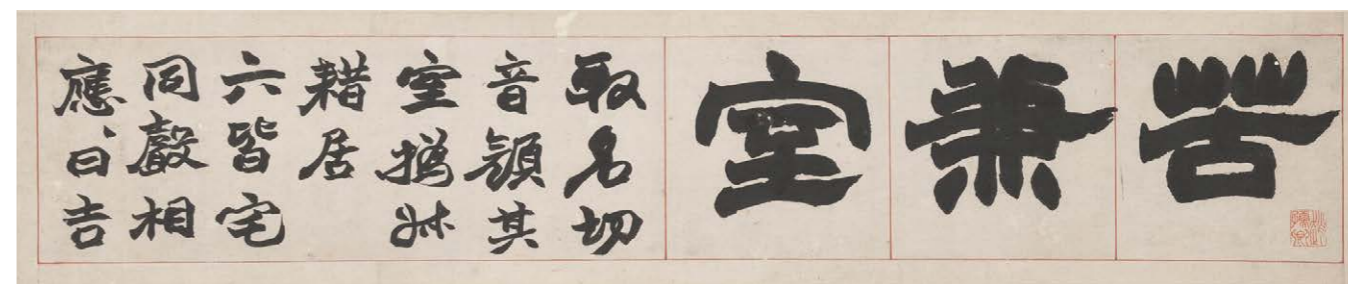 苦兼室
取名切
音額其
室撝叔
耤居
六皆宅
同聲相
應、曰吉